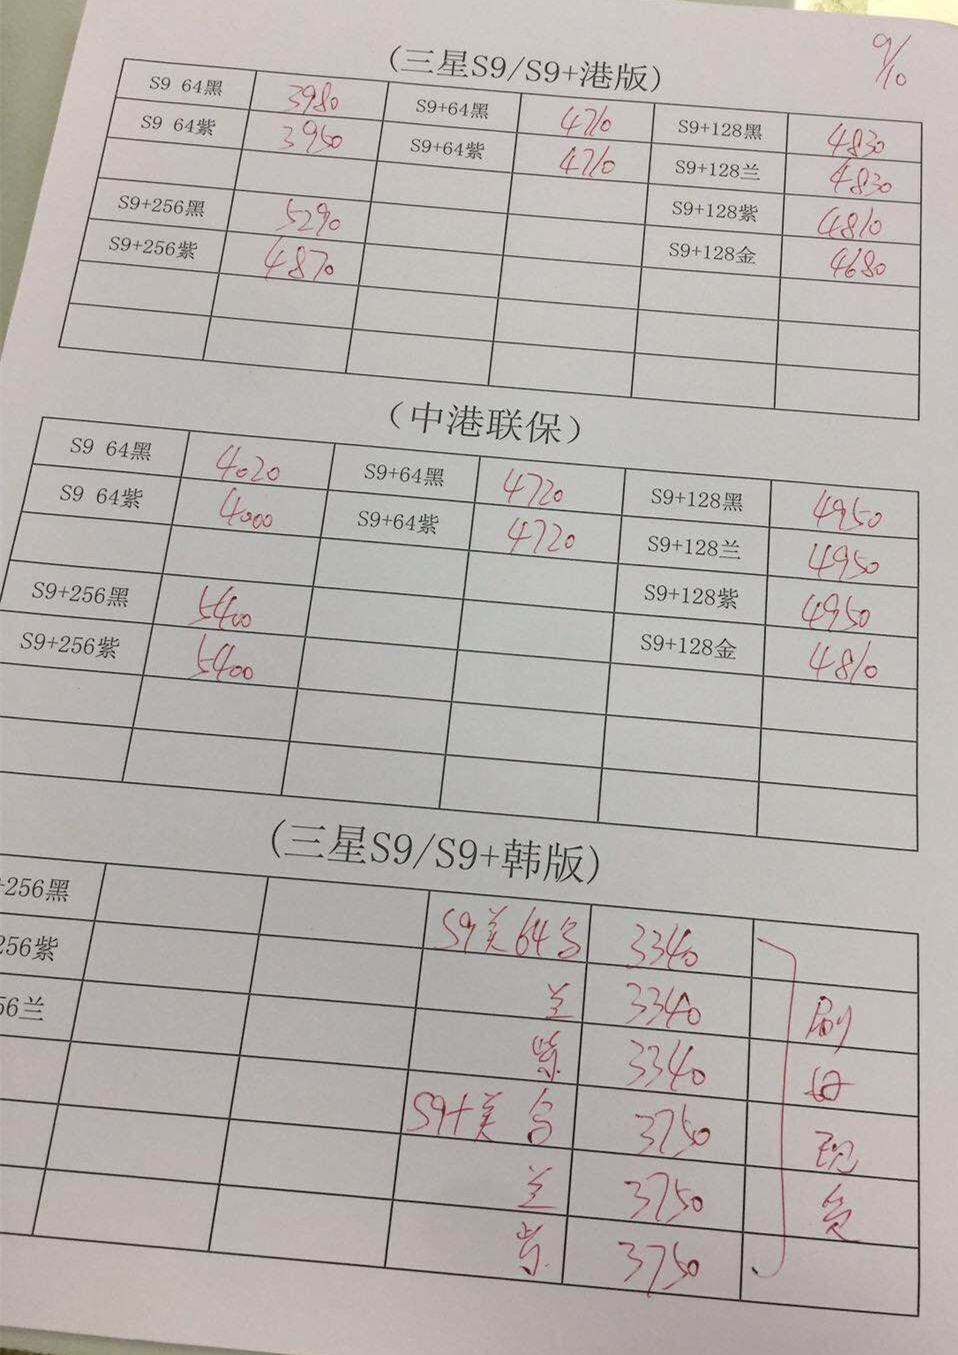 9/10
(三星S9/S9+港版)
S9 64黑 3980 S9+64黑 4710 S9+128黑 4830
S9 64紫 3950 S9+64紫 4710 S9+128兰 4830
S9+256黑 5290 S9+128紫 4810
S9+256紫 4870 S9+128金 4680
(中港联保)
S9 64黑 4020 S9+64黑 4720 S9+128黑 4950
S9 64紫 4000 S9+64紫 4720 S9+128兰 4950
S9+256黑 5400 S9+128紫 4950
S9+256紫 5400 S9+128金 4810
(三星S9/S9+韩版)
+256黑 S9美64 3340
256紫 兰 3340 刷
56兰 紫 3340
S9+美 3750 现
兰 3750
紫 3750